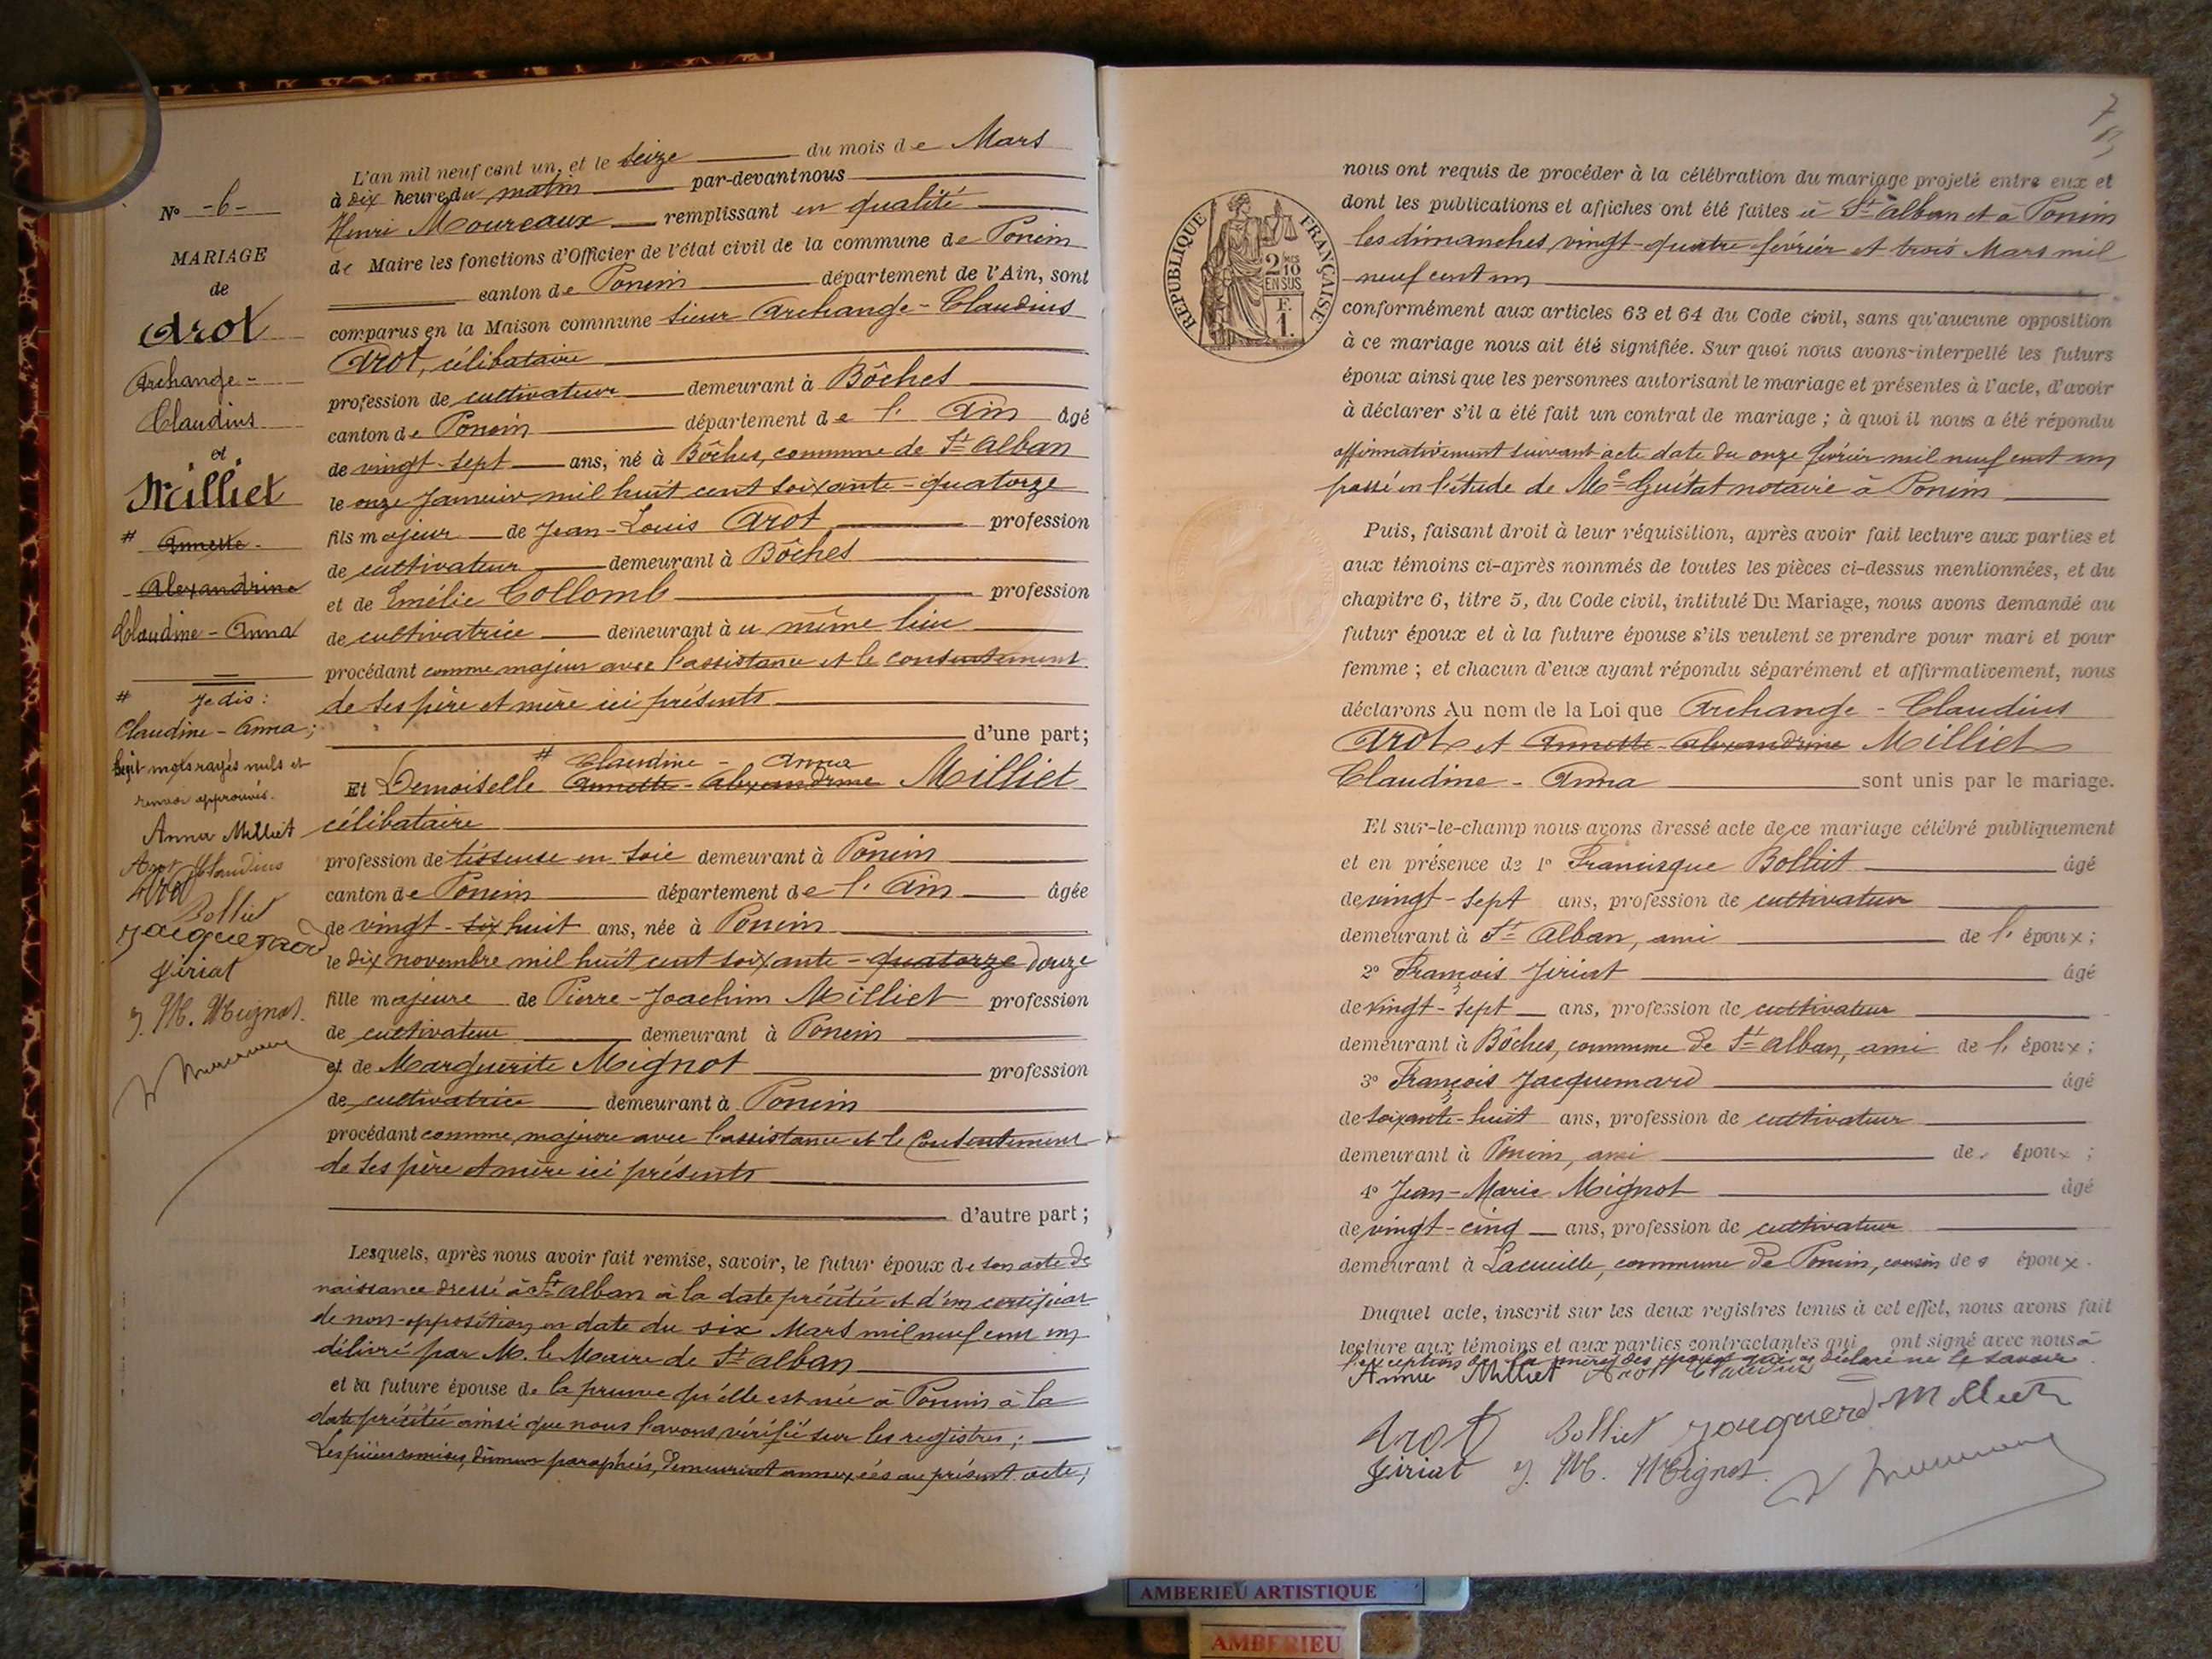 N° -6-
MARIAGE
de
Arot
Archange-
Claudius
et
Milliet
# Annette-
Alexandrine
Claudine-Anna
# Je dis:
Claudine-Anna;
huit mots rayés nuls et
renvoi approuvés.
Anna Milliet
Arot Claudius
Arot
Bolliet
Jacquemard
Jiriat
J. M. Mignot
L'an mil neuf cent un, et le seize du mois de Mars
à dix heures du matin par-devant nous
Henri Moureaux remplissant en qualité
de Maire les fonctions d'Officier de l'état civil de la commune de Poncin
canton de Poncin département de l'Ain, sont
comparus en la Maison commune sieur Archange-Claudius
Arot, célibataire
profession de cultivateur demeurant à Bôches
canton de Poncin département de l'Ain âgé
de vingt-sept ans, né à Bôches, commune de St Alban
le onze Janvier mil huit cent soixante-quatorze
fils majeur de Jean-Louis Arot profession
de cultivateur demeurant à Bôches
et de Emélie Collomb profession
de cultivatrice demeurant à u même lieu
procédant comme majeur avec l'assistance et le consentement
de ses père et mère ici présents
d'une part;
# Claudine-Anna
Et Demoiselle Annette-Alexandrine Milliet
célibataire
profession de tisseuse en soie demeurant à Poncin
canton de Poncin département de l'Ain âgée
de vingt-six huit ans, née à Poncin
le dix novembre mil huit cent soixante-quatorze douze
fille majeure de Pierre-Joachim Milliet profession
de cultivateur demeurant à Poncin
et de Marguerite Mignot profession
de cultivatrice demeurant à Poncin
procédant comme majeure avec l'assistance et le Consentement
de ses père et mère ici présents
d'autre part;
Lesquels, après nous avoir fait remise, savoir, le futur époux de son acte de
naissance dressé à St Alban à la date précitée et d'un certificat
de non-opposition en date du six Mars mil neuf cent un
délivré par M. le Maire de St Alban
et la future épouse de la preuve qu'elle est née à Poncin à la
date précitée ainsi que nous l'avons vérifié sur les registres;
Les pièces remises, dûment paraphées, demeurent annexées au présent acte;
7
RÉPUBLIQUE FRANÇAISE
2/10
EN SUS
F.
1.
nous ont requis de procéder à la célébration du mariage projeté entre eux et
dont les publications et affiches ont été faites à St Alban et à Poncin
les dimanches vingt-quatre février et trois Mars mil
neuf cent un
conformément aux articles 63 et 64 du Code civil, sans qu'aucune opposition
à ce mariage nous ait été signifiée. Sur quoi nous avons interpellé les futurs
époux ainsi que les personnes autorisant le mariage et présentes à l'acte, d'avoir
à déclarer s'il a été fait un contrat de mariage; à quoi il nous a été répondu
affirmativement suivant acte date du onze février mil neuf cent un
passé en l'étude de Me Guitat notaire à Poncin
Puis, faisant droit à leur réquisition, après avoir fait lecture aux parties et
aux témoins ci-après nommés de toutes les pièces ci-dessus mentionnées, et du
chapitre 6, titre 5, du Code civil, intitulé Du Mariage, nous avons demandé au
futur époux et à la future épouse s'ils veulent se prendre pour mari et pour
femme; et chacun d'eux ayant répondu séparément et affirmativement, nous
déclarons Au nom de la Loi que Archange-Claudius
Arot et Annette-Alexandrine Milliet
Claudine-Anna sont unis par le mariage.
Et sur-le-champ nous avons dressé acte de ce mariage célébré publiquement
et en présence de 1° Francisque Bolliet âgé
de vingt-sept ans, profession de cultivateur
demeurant à St Alban, ami de l'époux;
2° François Jiriat âgé
de vingt-sept ans, profession de cultivateur
demeurant à Bôches, commune de St Alban, ami de l'époux;
3° François Jacquemard âgé
de soixante-huit ans, profession de cultivateur
demeurant à Poncin, ami des époux;
4° Jean-Marie Mignot âgé
de vingt-cinq ans, profession de cultivateur
demeurant à Lacueille, commune de Poncin, cousin des époux.
Duquel acte, inscrit sur les deux registres tenus à cet effet, nous avons fait
lecture aux témoins et aux parties contractantes qui ont signé avec nous à
l'exception de la mère des époux qui a déclaré ne le savoir
Anna Milliet Arot Claudius
Arot Bolliet Jacquemard Milliet
Jiriat J. M. Mignot
AMBERIEU ARTISTIQUE
AMBERIEU